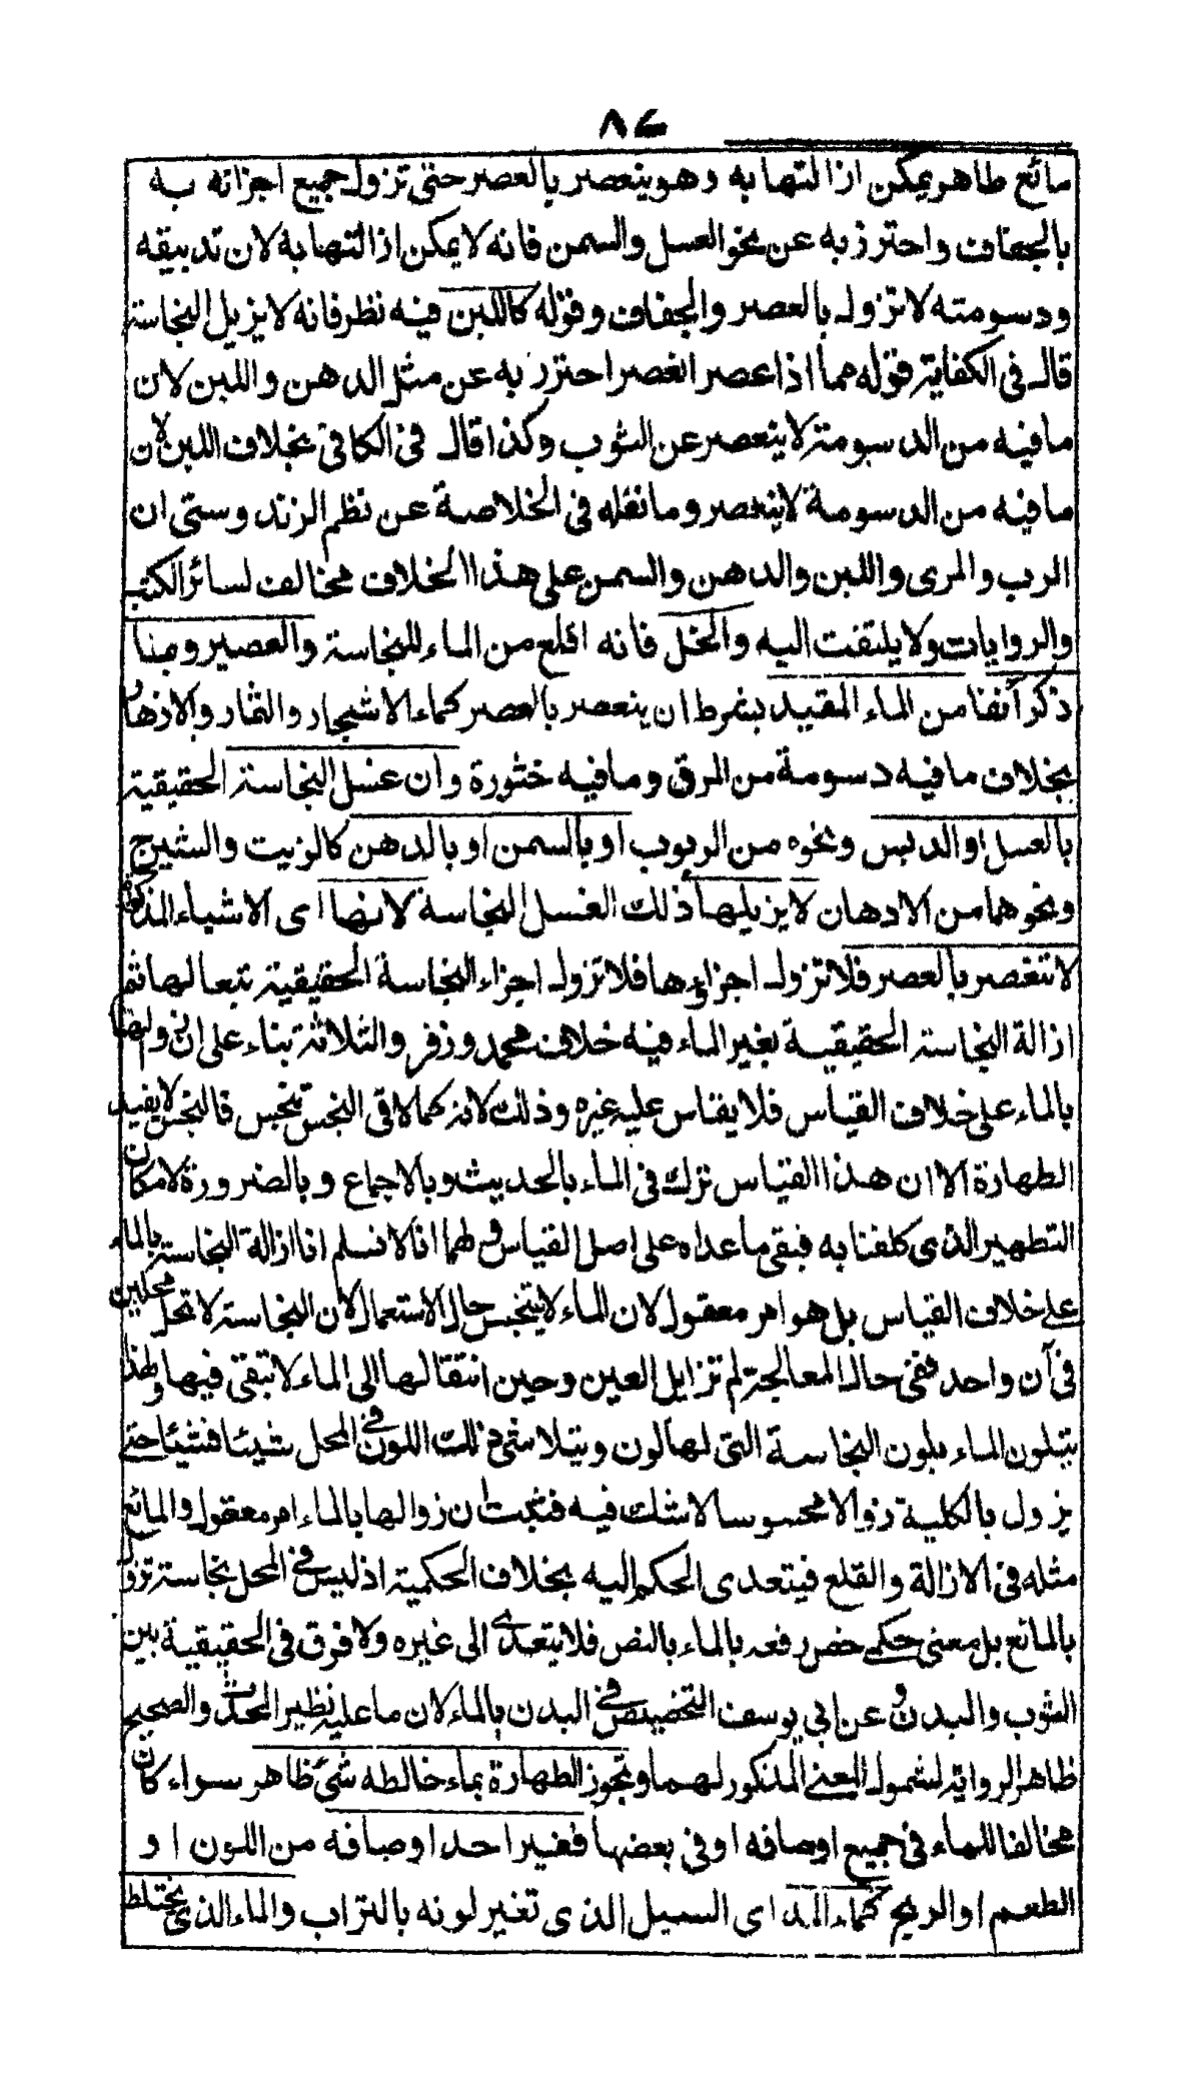 ٨٧
مائع طاهر يمكن ازالتها به وهو ينعصر بالعصر حتى تزول جميع اجزائه به
بالجفاف واحترز به عن نحو العسل والسمن فانه لا يمكن ازالتها به لان تدبيقه
ودسومته لا تزول بالعصر والجفاف وقوله كاللبن فيه نظر فانه لا يزيل النجاسة
قال فى الكفاية قوله مما اذا عصر انعصر احترز به عن مثل الدهن واللبن لان
ما فيه من الدسومة لا ينعصر عن الثوب وكذا قال فى الكافى بخلاف اللبن لان
ما فيه من الدسومة لا ينعصر وما نقله فى الخلاصة عن نظم الزند وستى ان
الرب والمرى واللبن والدهن والسمن على هذا الخلاف مخالف لسائر الكتب
والروايات ولا يلتفت اليه والخل فانه اقلع من الماء للنجاسة والعصير ومنا
ذكر آنفا من الماء المقيد بشرط ان ينعصر بالعصر كماء الاشجار والثمار والازهار
بخلاف ما فيه دسومة من المرق وما فيه خثورة وان غسل النجاسة الحقيقية
بالعسل او الدبس ونحوه من الربوب او بالسمن او بالدهن كالزيت والشيرج
ونحوهما من الادهان لا يزيلها ذلك الغسل النجاسة لانها اى الاشياء المذكورة
لا تنعصر بالعصر فلا تزول اجزاؤها فلا تزول اجزاء النجاسة الحقيقية تبعا لها ثم
ازالة النجاسة الحقيقية بغير الماء فيه خلاف محمد وزفر والثلاثة بناء على ان زوالها
بالماء على خلاف القياس فلا يقاس عليه غيره وذلك لانه كما لاقى النجس تنجس فالنجس لا يفيد
الطهارة الا ان هذا القياس ترك فى الماء بالحديث وبالاجماع وبالضرورة لامكان
التطهير الذى كلفنا به فبقى ما عداه على اصل القياس ولهما انا لا نسلم ان ازالة النجاسة بالماء
على خلاف القياس بل هو امر معقول لان الماء لا يتنجس حال الاستعمال لان النجاسة لا تحل محلين
فى آن واحد ففى حال المعالجة لم تزايل العين وحين انتقالها الى الماء لا تبقى فيها ولهذا
يتلون الماء بلون النجاسة التى لها لون ويتلاشى ذلك اللون فى المحل شيئا فشيئا حتى
يزول بالكلية زوالا محسوسا لا شك فيه فثبت ان زوالها بالماء امر معقول والمائع
مثله فى الازالة والقلع فيتعدى الحكم اليه بخلاف الحكمية اذ ليس فى المحل نجاسة تزول
بالمائع بل معنى حكمى خص رفعه بالماء بالنص فلا يتعدى الى غيره ولا فرق فى الحقيقية بين
الثوب والبدن وعن ابى يوسف التخصيص فى البدن بالماء لان ما عليه نظير الحدث والصحيح
ظاهر الرواية لشمول المعنى المذكور لهما وتجوز الطهارة بماء خالطه شئ طاهر سواء كان
مخالفا للماء فى جميع اوصافه او فى بعضها فغير احد اوصافه من اللون او
الطعم او الريح كماء المد اى السيل الذى تغير لونه بالتراب والماء الذى يختلط